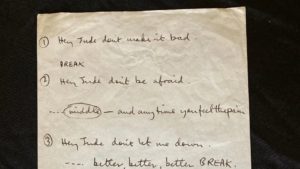 ① Hey Jude dont make it bad.
BREAK
② Hey Jude don't be afraid.
---- middle — and anytime you feel the pain
③ Hey Jude don't let me down.
---- better, better, better BREAK.